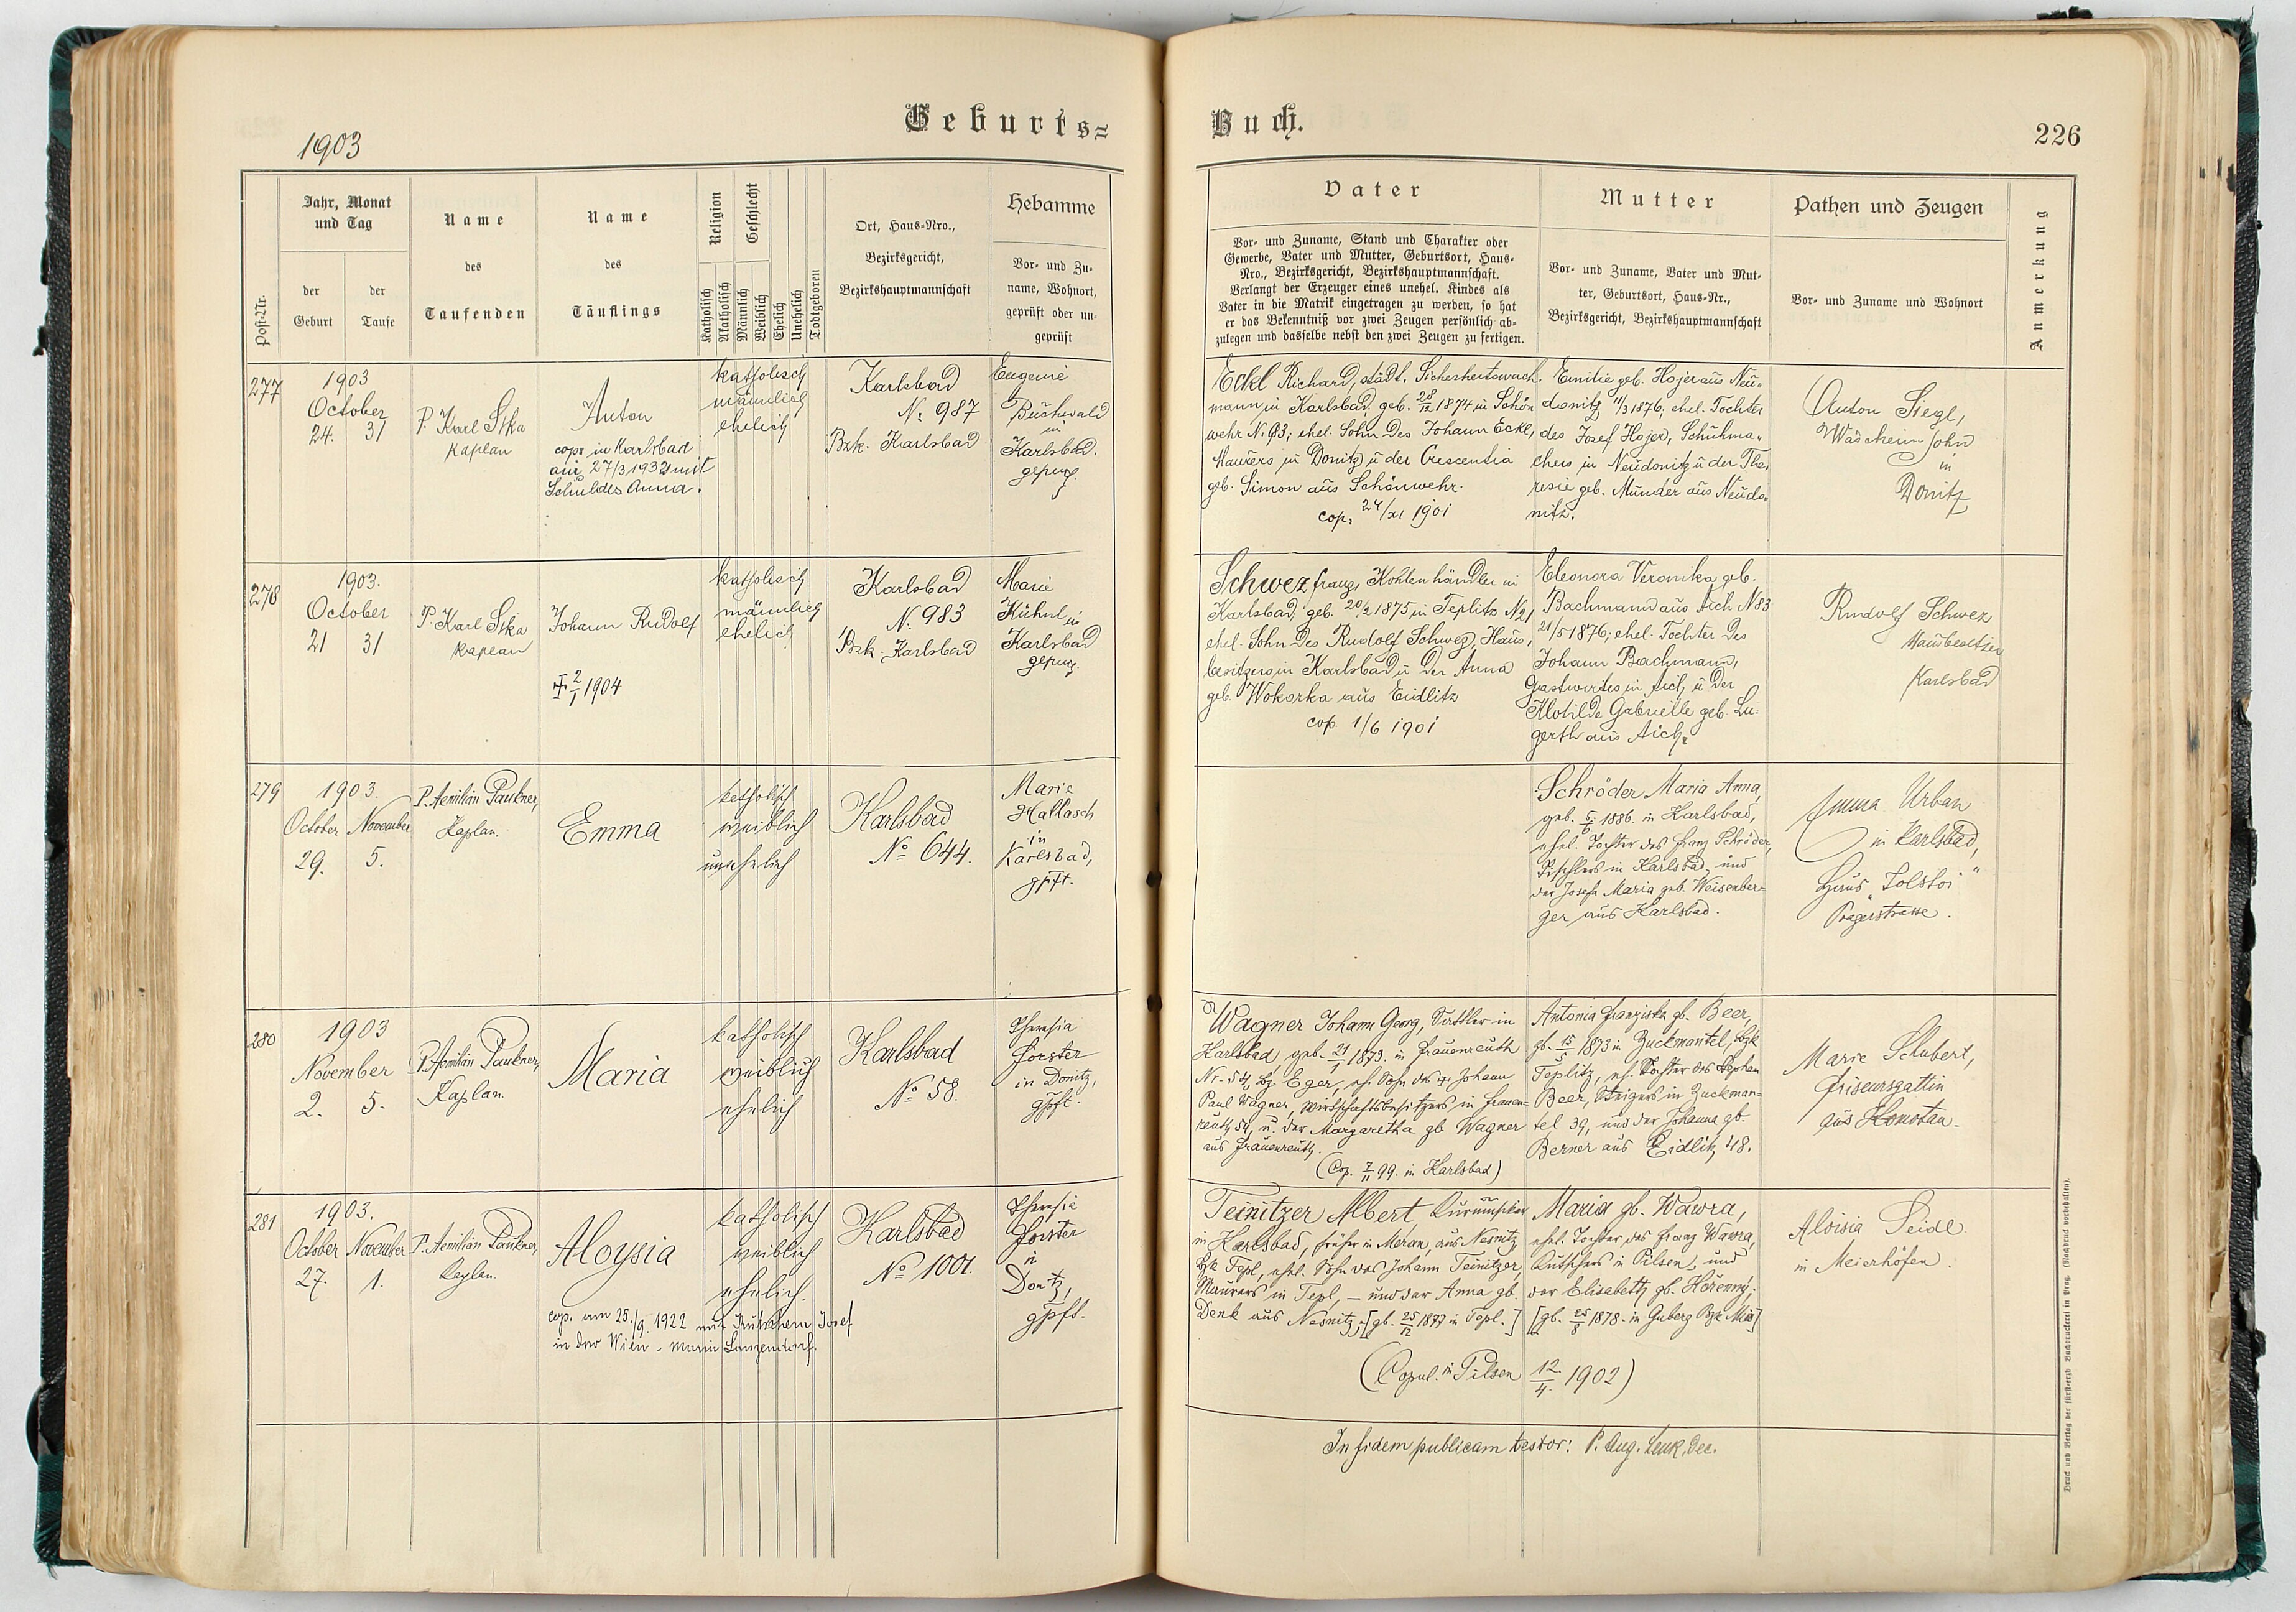 1903
Geburts=
Buch.
226
Post-Nr.
Jahr, Monat
und Tag
der
Geburt
der
Taufe
Name
des
Taufenden
Name
des
Täuflings
Religion
Katholisch
Akatholisch
Geschlecht
Männlich
Weiblich
Ehelich
Unehelich
Todtgeboren
Ort, Haus=Nro.,
Bezirksgericht,
Bezirkshauptmannschaft
Hebamme
Vor= und Zu=
name, Wohnort,
geprüft oder un=
geprüft
Vater
Vor= und Zuname, Stand und Charakter oder
Gewerbe, Vater und Mutter, Geburtsort, Haus=
Nro., Bezirksgericht, Bezirkshauptmannschaft.
Verlangt der Erzeuger eines unehel. Kindes als
Vater in die Matrik eingetragen zu werden, so hat
er das Bekenntniß vor zwei Zeugen persönlich ab=
zulegen und dasselbe nebst den zwei Zeugen zu fertigen.
Mutter
Vor= und Zuname, Vater und Mut=
ter, Geburtsort, Haus=Nr.,
Bezirksgericht, Bezirkshauptmannschaft
Pathen und Zeugen
Vor= und Zuname und Wohnort
Anmerkung
277
1903
October
24. 31
P. Karl Sika
Kaplan
Anton
cop. in Karlsbad
am 27/3 1932 mit
Anna.
katholisch
männlich
ehelich
Karlsbad
N: 987
Bzk. Karlsbad
Eugenie
Buchwald
in
Karlsbad.
geprüf.
Eckl Richard, städt. Sicherheitswach-
mann in Karlsbad, geb. 28/12 1874 in Schön
wehr N. 63; ehel. Sohn des Johann Eckl,
Maurers in Donitz u der Crescentia
geb. Simon aus Schönwehr.
cop. 24/XI 1901
Emilie geb. Hojer aus Neu-
donitz 11/3 1876, ehel. Tochter
des Josef Hojer, Schuhma-
chers in Neudonitz u der The-
resie geb. Münder aus Neudo-
nitz.
Anton Siegl,
in
Donitz
278
1903.
October
21 31
P. Karl Sika
Kaplan
Johann Rudolf
† 2/1 1904
katholisch
männlich
ehelich
Karlsbad
N. 983
Bzk. Karlsbad
Marie
Kühnl in
Karlsbad
geprüf.
Schwez Franz, Kohlenhändler in
Karlsbad, geb. 20/2 1875 in Teplitz N 21
ehel. Sohn des Rudolf Schwez, Haus,
besitzers in Karlsbad u der Anna
geb. Wokorka aus Eidlitz
cop. 1/6 1901
Eleonora Veronika geb.
Bachmann aus Aich N 83
21/5 1876; ehel. Tochter des
Johann Bachmann,
Gastwirtes in Aich u der
Klotilde Gabrielle geb. Lu-
gerth aus Aich.
Rudolf Schwez
Hausbesitzer
Karlsbad
279
1903.
October November
29. 5.
P. Aemilian Paukner,
Kaplan.
Emma
katholisch
weiblich
unehelich
Karlsbad
No 644.
Marie
Hallasch
in
Karlsbad,
gpft.
Schröder Maria Anna,
geb. 5/6 1886. in Karlsbad,
ehel. Tochter des Franz Schröder,
Tischlers in Karlsbad, und
der Josefa Maria geb. Weisenber-
ger aus Karlsbad.
Emma Urban
in Karlsbad,
Haus „Tolstoi"
Pragerstrasse.
280
1903
November
2. 5.
P. Aemilian Paukner,
Kaplan.
Maria
katholisch
weiblich
ehelich
Karlsbad
No 58.
Theresia
Forster
in Donitz,
gpft.
Wagner Johann Georg, Sattler in
Karlsbad geb. 21/1 1873. in Frauenreuth
Nr. 54, Bz. Eger, eh. Sohn des Johann
Paul Wagner, Wirtschaftsbesitzers in Frauen=
reuth 54, u. der Margaretha gb. Wagner
aus Frauenreuth.
(Cop. 7/11 99. in Karlsbad)
Antonia Franziska gb. Beer,
gb. 15/5 1873 in Zuckmantel, Bzk
Teplitz, eh. Tochter des Stephan
Beer, Steigers in Zuckman=
tel 39, und der Johanna gb.
Berner aus Eidlitz 48.
Marie Schubert,
Friseursgattin
aus Komotau.
281
1903.
October November
27. 1.
P. Aemilian Paukner,
Kaplan.
Aloysia
cop. am 25./9. 1922 mit Josef
in der Wien - Maria Lanzendorf.
katholisch
weiblich
ehelich.
Karlsbad
No 1001.
Theresia
Forster
in
Donitz,
gpft.
Teinitzer Albert, Kurmusiker
in Karlsbad, früher in Meran, aus Nesnitz
Bzk Tepl, ehel. Sohn des Johann Teinitzer,
Maurers in Tepl, – und der Anna gb.
Denk aus Nesnitz; [gb. 25/12 1877 in Tepl.]
Maria gb. Wawra,
ehel. Tochter des Franz Wawra,
Kutschers in Pilsen, und
der Elisabeth gb. Horenny;
[gb. 25/8 1878. in Guberg Bzk Mies]
(Copul. in Pilsen 12./4. 1902)
Aloisia Seidl
in Meierhöfen.
In fidem publicam testor: P. Aug. Lenk, Dec.
Druck und Verlag der fürst=erzb. Buchdruckerei in Prag. (Nachdruck vorbehalten).